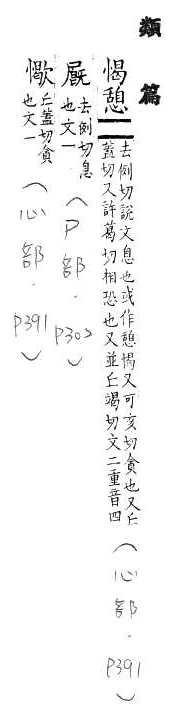 類篇
愒憩
去例切說文息也或作憩愒又可亥切貪也又丘
蓋切又許葛切相恐也又並丘竭切文二重音四
(心部.P391)
去例切息
也文一
(尸部.P302)
丘蓋切貪
也文一
(心部.P391)